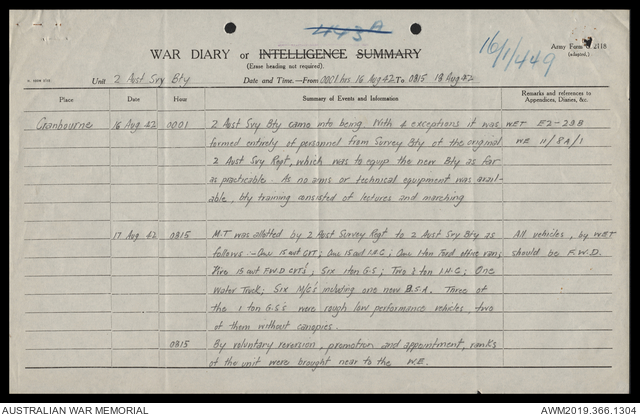 443A
WAR DIARY or INTELLIGENCE SUMMARY
(Erase heading not required).
Army Form C 2118
(adapted.)
16/1/449
Unit 2 Aust Svy Bty
Date and Time.—From 0001 hrs 16 Aug 42 To 0815 18 Aug 42
Place
Date
Hour
Summary of Events and Information
Remarks and references to
Appendices, Diaries, &c.
Cranbourne
16 Aug 42
0001
2 Aust Svy Bty came into being. With 4 exceptions it was
formed entirely of personnel from Survey Bty of the original
2 Aust Svy Regt, which was to equip the new Bty as far
as practicable. As no arms or technical equipment was avail-
able, bty training consisted of lectures and marching
WET E2-29B
WE 11/8A/1
17 Aug 42
0815
M.T was allotted by 2 Aust Survey Regt to 2 Aust Svy Bty as
follows:- One 15 cwt CVT; One 15 cwt I.H.C; One 1 ton Ford office van;
Five 15 cwt F.W.D CVT's; Six 1 ton G.S; Two 2 ton I.H.C; One
Water Truck; Six M/C's including one new B.S.A. Three of
the 1 ton G.S's were rough low performance vehicles two
of them without canopies.
All vehicles, by WET
should be F.W.D.
0815
By voluntary reversion, promotion and appointment, ranks
of the unit were brought near to the W.E.
AUSTRALIAN WAR MEMORIAL
AWM2019.366.1304